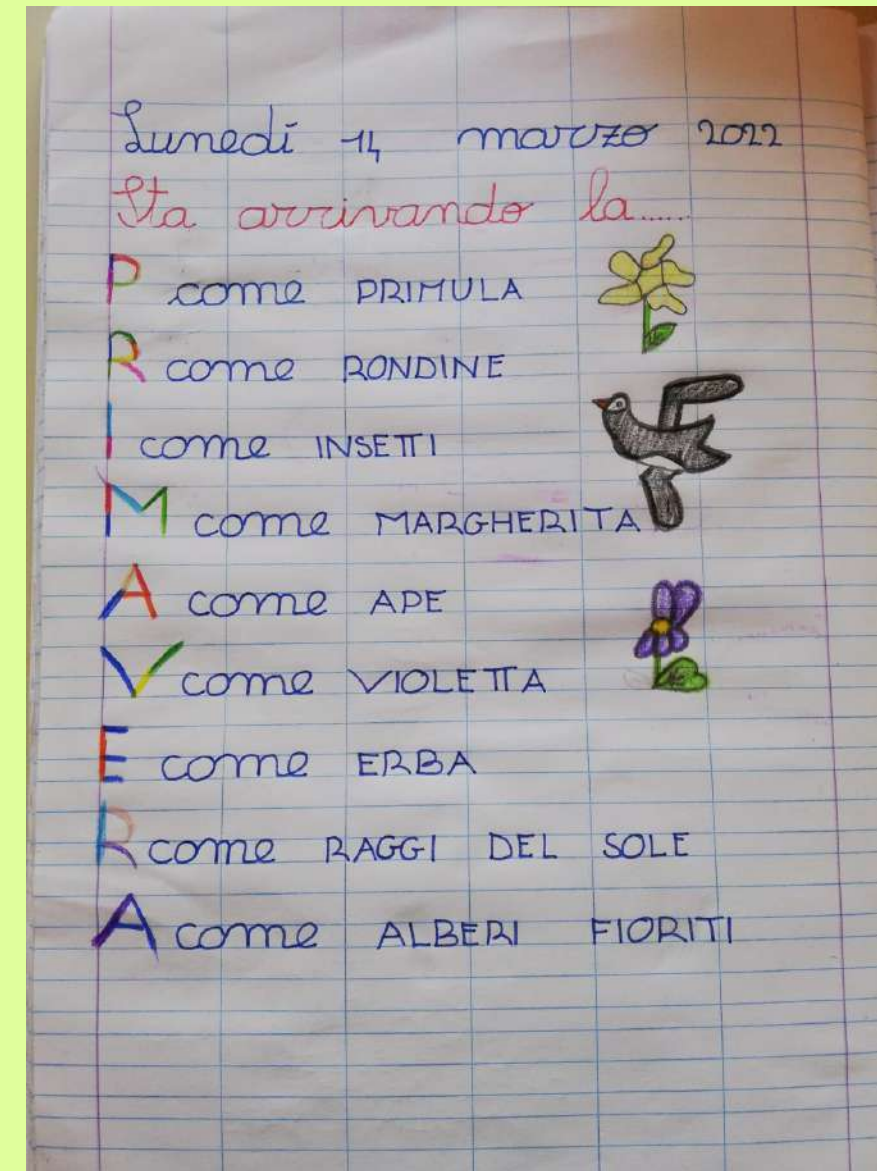 Lunedì 14 marzo 2022
Sta arrivando la......
P come PRIMULA
R come RONDINE
I come INSETTI
M come MARGHERITA
A come APE
V come VIOLETTA
E come ERBA
R come RAGGI DEL SOLE
A come ALBERI FIORITI